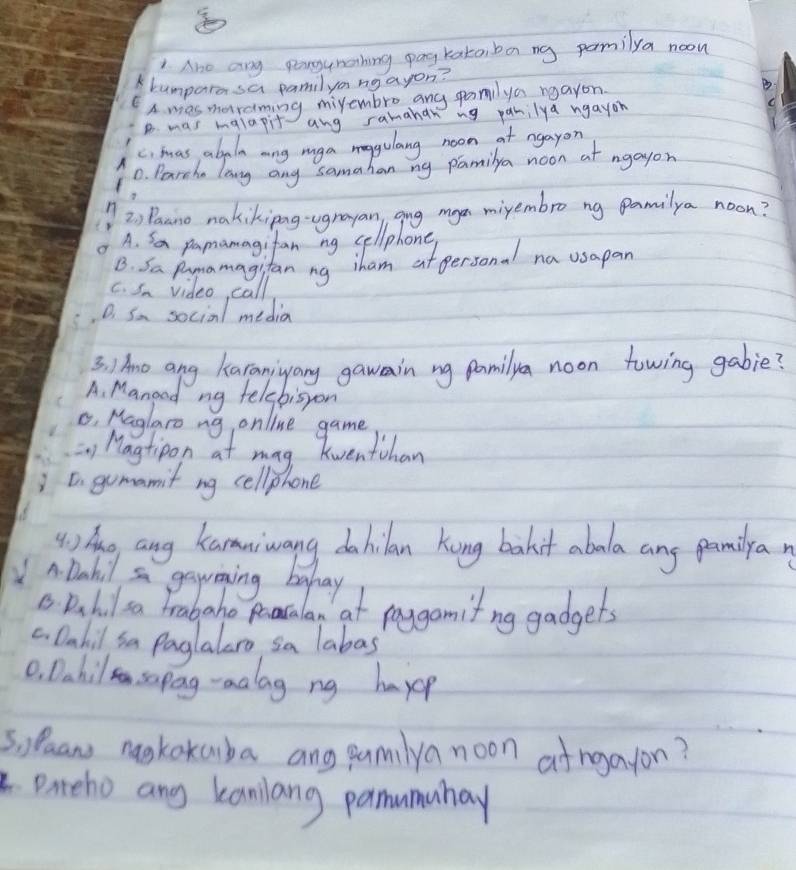 1. Ano ang pangunahing pagkakaiba ng pamilya noon
kumpara sa pamilya ngayon?
A. mas maraming miyembro ang pamilya ngayon.
B. mas malapit ang samahan ng pamilya ngayon
C. mas abala ang mga magulang noon at ngayon
D. Pareho lang ang samahan ng pamilya noon at ngayon
2.) Paano nakikipag-ugnayan, ang mga miyembro ng pamilya noon?
A. Sa pamamagitan ng cellphone,
B. Sa Pamamagitan ng iham at personal na usapan
C. Sa video call
D. Sa social media
3.) Ano ang karaniwang gawain ng pamilya noon tuwing gabie?
A. Manood ng telebisyon
B. Maglaro ng online game
C.) Magtipon at mag kwentuhan
D. gumamit ng cellphone
4.) Ano ang karaniwang dahilan kung bakit abala ang pamilya n
A. Dahil sa gawaing bahay
B. Dahil sa trabaho paaralan at paggamit ng gadgets
C. Dahil sa Paglalaro sa labas
D. Dahil sapag-aalag ng hayop
5.) Paano nagkakaiba ang pamilya noon at ngayon?
Pareho ang kanilang pamumuhay